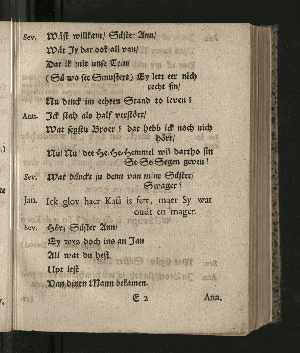 Sev. Wäst willkam/ Süster Ann/
Wät Jy dar ook all van/
Dat ik mit unse Trin/
(Sü wo see Smustert) Ey lett eer nich
recht fin/
Nu denck im echten Stand to leven!
Ann. Jck stah als half verstört/
Wat segstu Broer! dat hebb ick noch nich
hört/
Nu! Nu! der He-He-Hemmel wil dartho sin
Se-Se-Segen geven!
Sev. Wat dünckt ju denn van mine Süster/
Swager?
Jan. Ick glov haer Kass is fett, maer Sy wat
oudt en mager.
Sev. Hör/ Süster Ann/
Ey wys doch ins an Jan
All wat du hest.
Upt lest
Van dinen Mann bekamen.
E 2 Ann.